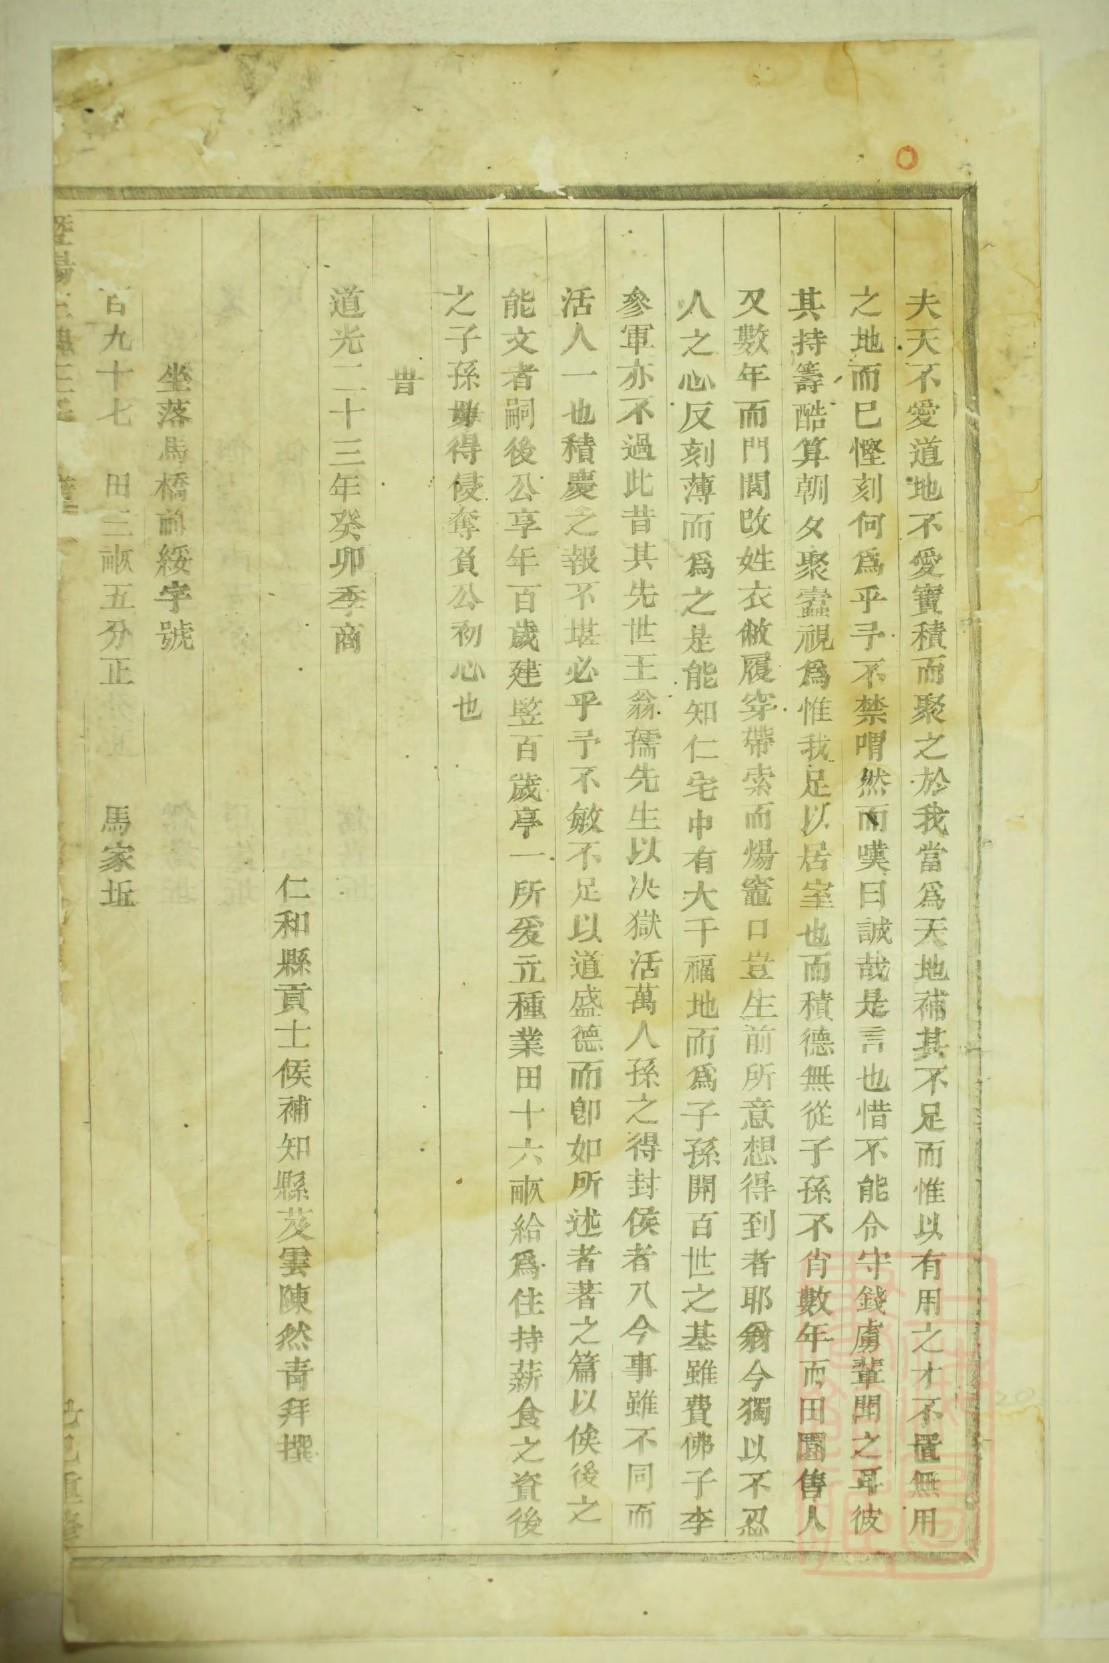 夫天不愛道地不愛寶積而聚之於我當爲天地補其不足而惟以有用之才不置無用
之地而已慳刻何爲乎予不禁喟然而嘆曰誠哉是言也惜不能令守錢虜輩聞之耳彼
其持籌酷算朝夕聚蠹視爲惟我足以居室也而積德無從子孫不肖數年而田園售人
又數年而門閭改姓衣敝履穿帶索而煬竈口豈生前所意想得到者耶翁今獨以不忍
人之心反刻薄而爲之是能知仁宅中有大千福地而爲子孫開百世之基雖費佛子李
參軍亦不過此昔其先世王翁孺先生以决獄活萬人孫之得封侯者八今事雖不同而
活人一也積慶之報不堪必乎予不敏不足以道盛德而卽如所述者著之篇以俟後之
能文者嗣後公享年百歲建竪百歲亭一所爰立種業田十六畝給爲住持薪食之資後
之子孫毋得侵奪負公初心也
旹
道光二十三年癸卯季商
仁和縣貢士候補知縣芨雲陳然青拜撰
坐落馬橋前綏字號
百九十七 田三畝五分正 馬家坵
己巳重修